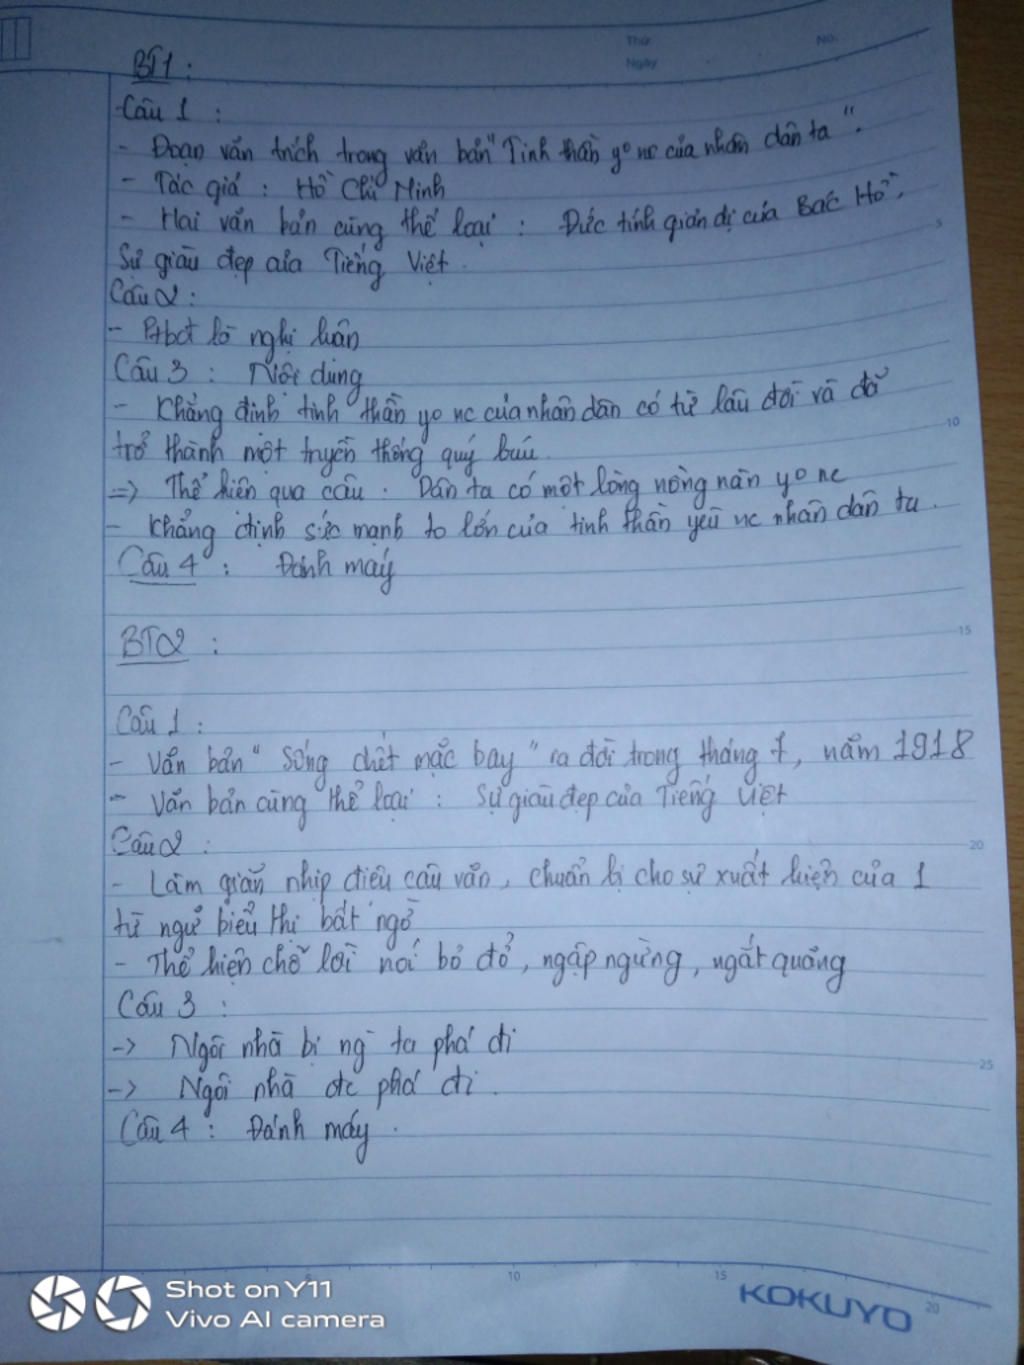 Thứ
No.
Ngày
BT1 :
Câu 1 :
- Đoạn văn trích trong văn bản "Tinh thần yo nc của nhân dân ta".
- Tác giả : Hồ Chí Minh
- Hai văn bản cùng thể loại : Đức tính giản dị của Bác Hồ,
Sự giàu đẹp của Tiếng Việt.
Câu 2 :
- Ptbđt là nghị luận
Câu 3 : Nội dung
- Khẳng định tinh thần yo nc của nhân dân có từ lâu đời và đã
trở thành một truyền thống quý báu.
=> Thể hiện qua câu . Dân ta có một lòng nồng nàn yo nc
- Khẳng định sức mạnh to lớn của tinh thần yêu nc nhân dân ta.
Câu 4 : Đánh máy
BT2 :
Câu 1 :
- Văn bản " Sống chết mặc bay " ra đời trong tháng 7, năm 1918
- Văn bản cùng thể loại : Sự giàu đẹp của Tiếng Việt
Câu 2 :
- Làm giãn nhịp điệu câu văn, chuẩn bị cho sự xuất hiện của 1
từ ngữ biểu thị bất ngờ
- Thể hiện chỗ lời nói bỏ dở, ngập ngừng, ngắt quãng
Câu 3 :
-> Ngôi nhà bị ng` ta phá đi
-> Ngôi nhà đc phá đi.
Câu 4 : Đánh máy.
5
10
15
20
25
10
15
20
KOKUYO
Shot on Y11
Vivo AI camera